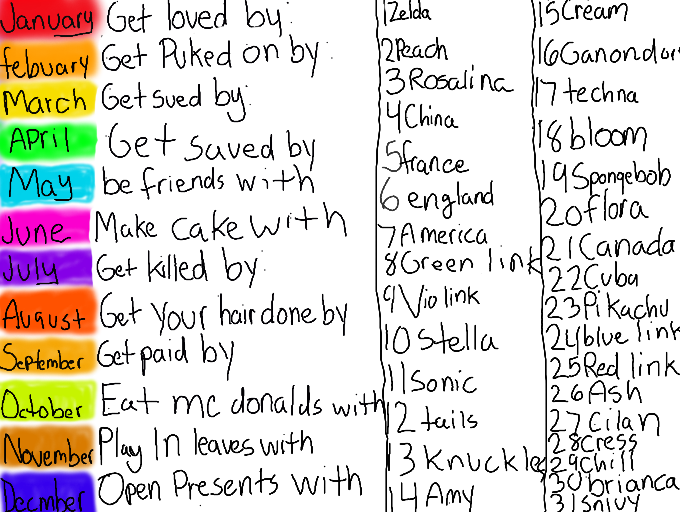 January Get loved by:
febuary Get Puked on by:
March Get sued by:
APril Get saved by
May be friends with
June Make cake with
July Get killed by:
August Get your hair done by
September Get paid by
October Eat mc donalds with
November Play In leaves with
Decmber Open Presents with
1Zelda
2Peach
3Rosalina
4China
5france
6 england
7America
8Green link
9Vio link
10 Stella
11Sonic
12 tails
13 Knuckles
14 Amy
15Cream
16Ganondor
17 techna
18 bloom
19Spongebob
20flora
21Canada
22Cuba
23Pikachu
24blue link
25Red link
26Ash
27Cilan
28Cress
29Chill
30brianca
31snivy